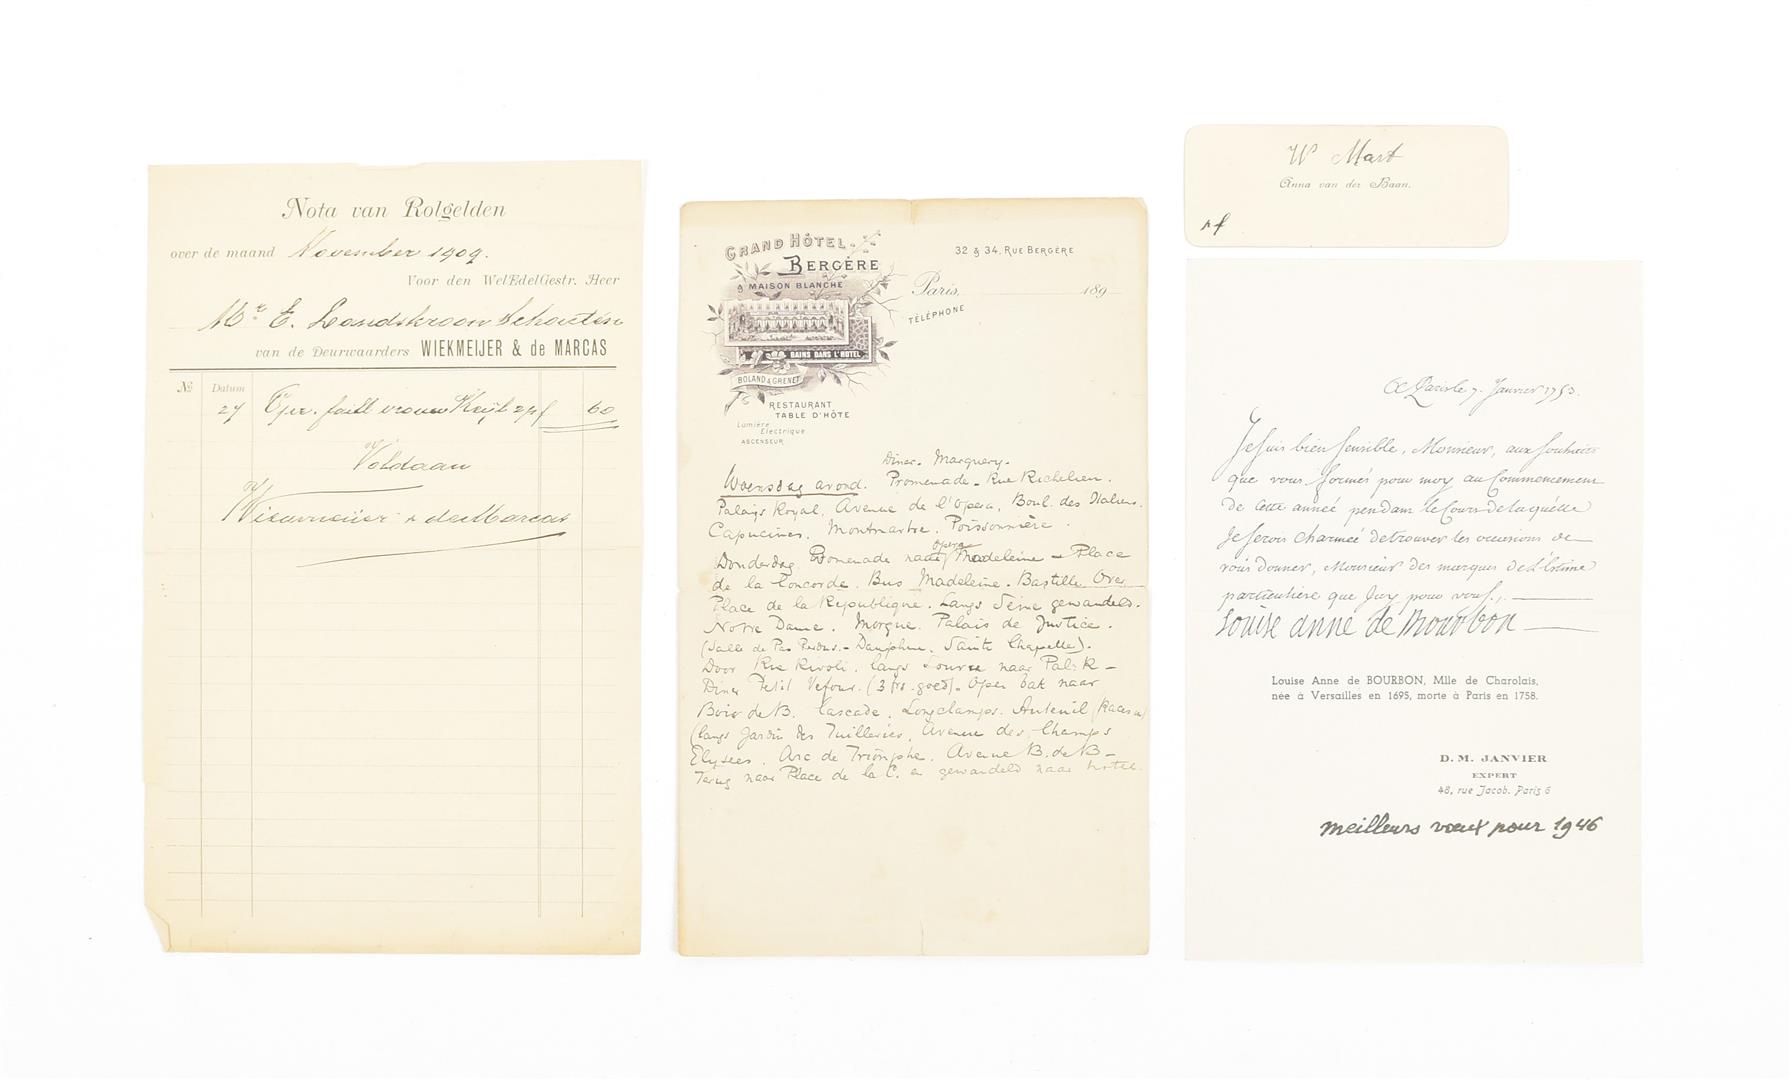 Nota van Rolgelden
over de maand November 1909.
Voor den WelEdelGestr. Heer
Mr. E. Landskroon Schouten
van de Deurwaarders WIEKMEIJER & de MARCAS
No Datum
27 faill 60
Voldaan
Wiekmeijer & de Marcas
GRAND HÔTEL
BERGÈRE
& MAISON BLANCHE
32 & 34, RUE BERGÈRE
Paris, 189
TÉLÉPHONE
BAINS DANS L'HOTEL
BOLAND & GRENET
RESTAURANT
TABLE D'HÔTE
Lumière
Electrique
ASCENSEUR
Diner. Marguery.
Woensdag avond. Promenade - Rue Richelieu.
Palais Royal, Avenue de l'Opera, Boul. des Italiens.
Capucines. Montmartre. Poissonnière.
Donderdag. Promenade naar opera Madeleine - Place
de la Concorde. Bus Madeleine - Bastille. Over
Place de la République. Langs Seine gewandeld.
Notre Dame. Morgue. Palais de Justice.
(Salle de Pas Perdus. - Dauphine. Sainte Chapelle).
Door Rue Rivoli, langs Louvre naar Pal. R -
Diner Petit Vefour. (3 frs. goed). Open bak naar
Bois de B. Cascade. Longchamps. Auteuil (Races)
(langs Jardin des Tuilleries, Avenue des Champs
Elysees. Arc de Triomphe. Avenue B. de B -
Terug naar Place de la C. en gewandeld naar hotel.
W Mart
Anna van der Baan.
rf
A Paris le 7. Janvier 1753.
Je suis bien sensible, Monsieur, aux souhaits
que vous formés pour moy au Commencement
de cette année pendant le Cours de laquélle
je serois charmée de trouver les occasions de
vous donner, Monsieur des marques de l'Estime
particuliére que j'ay pour vous.
Louise anne de Bourbon
Louise Anne de BOURBON, Mlle de Charolais,
née à Versailles en 1695, morte à Paris en 1758.
D. M. JANVIER
EXPERT
48, rue Jacob. Paris 6
meilleurs vœux pour 1946